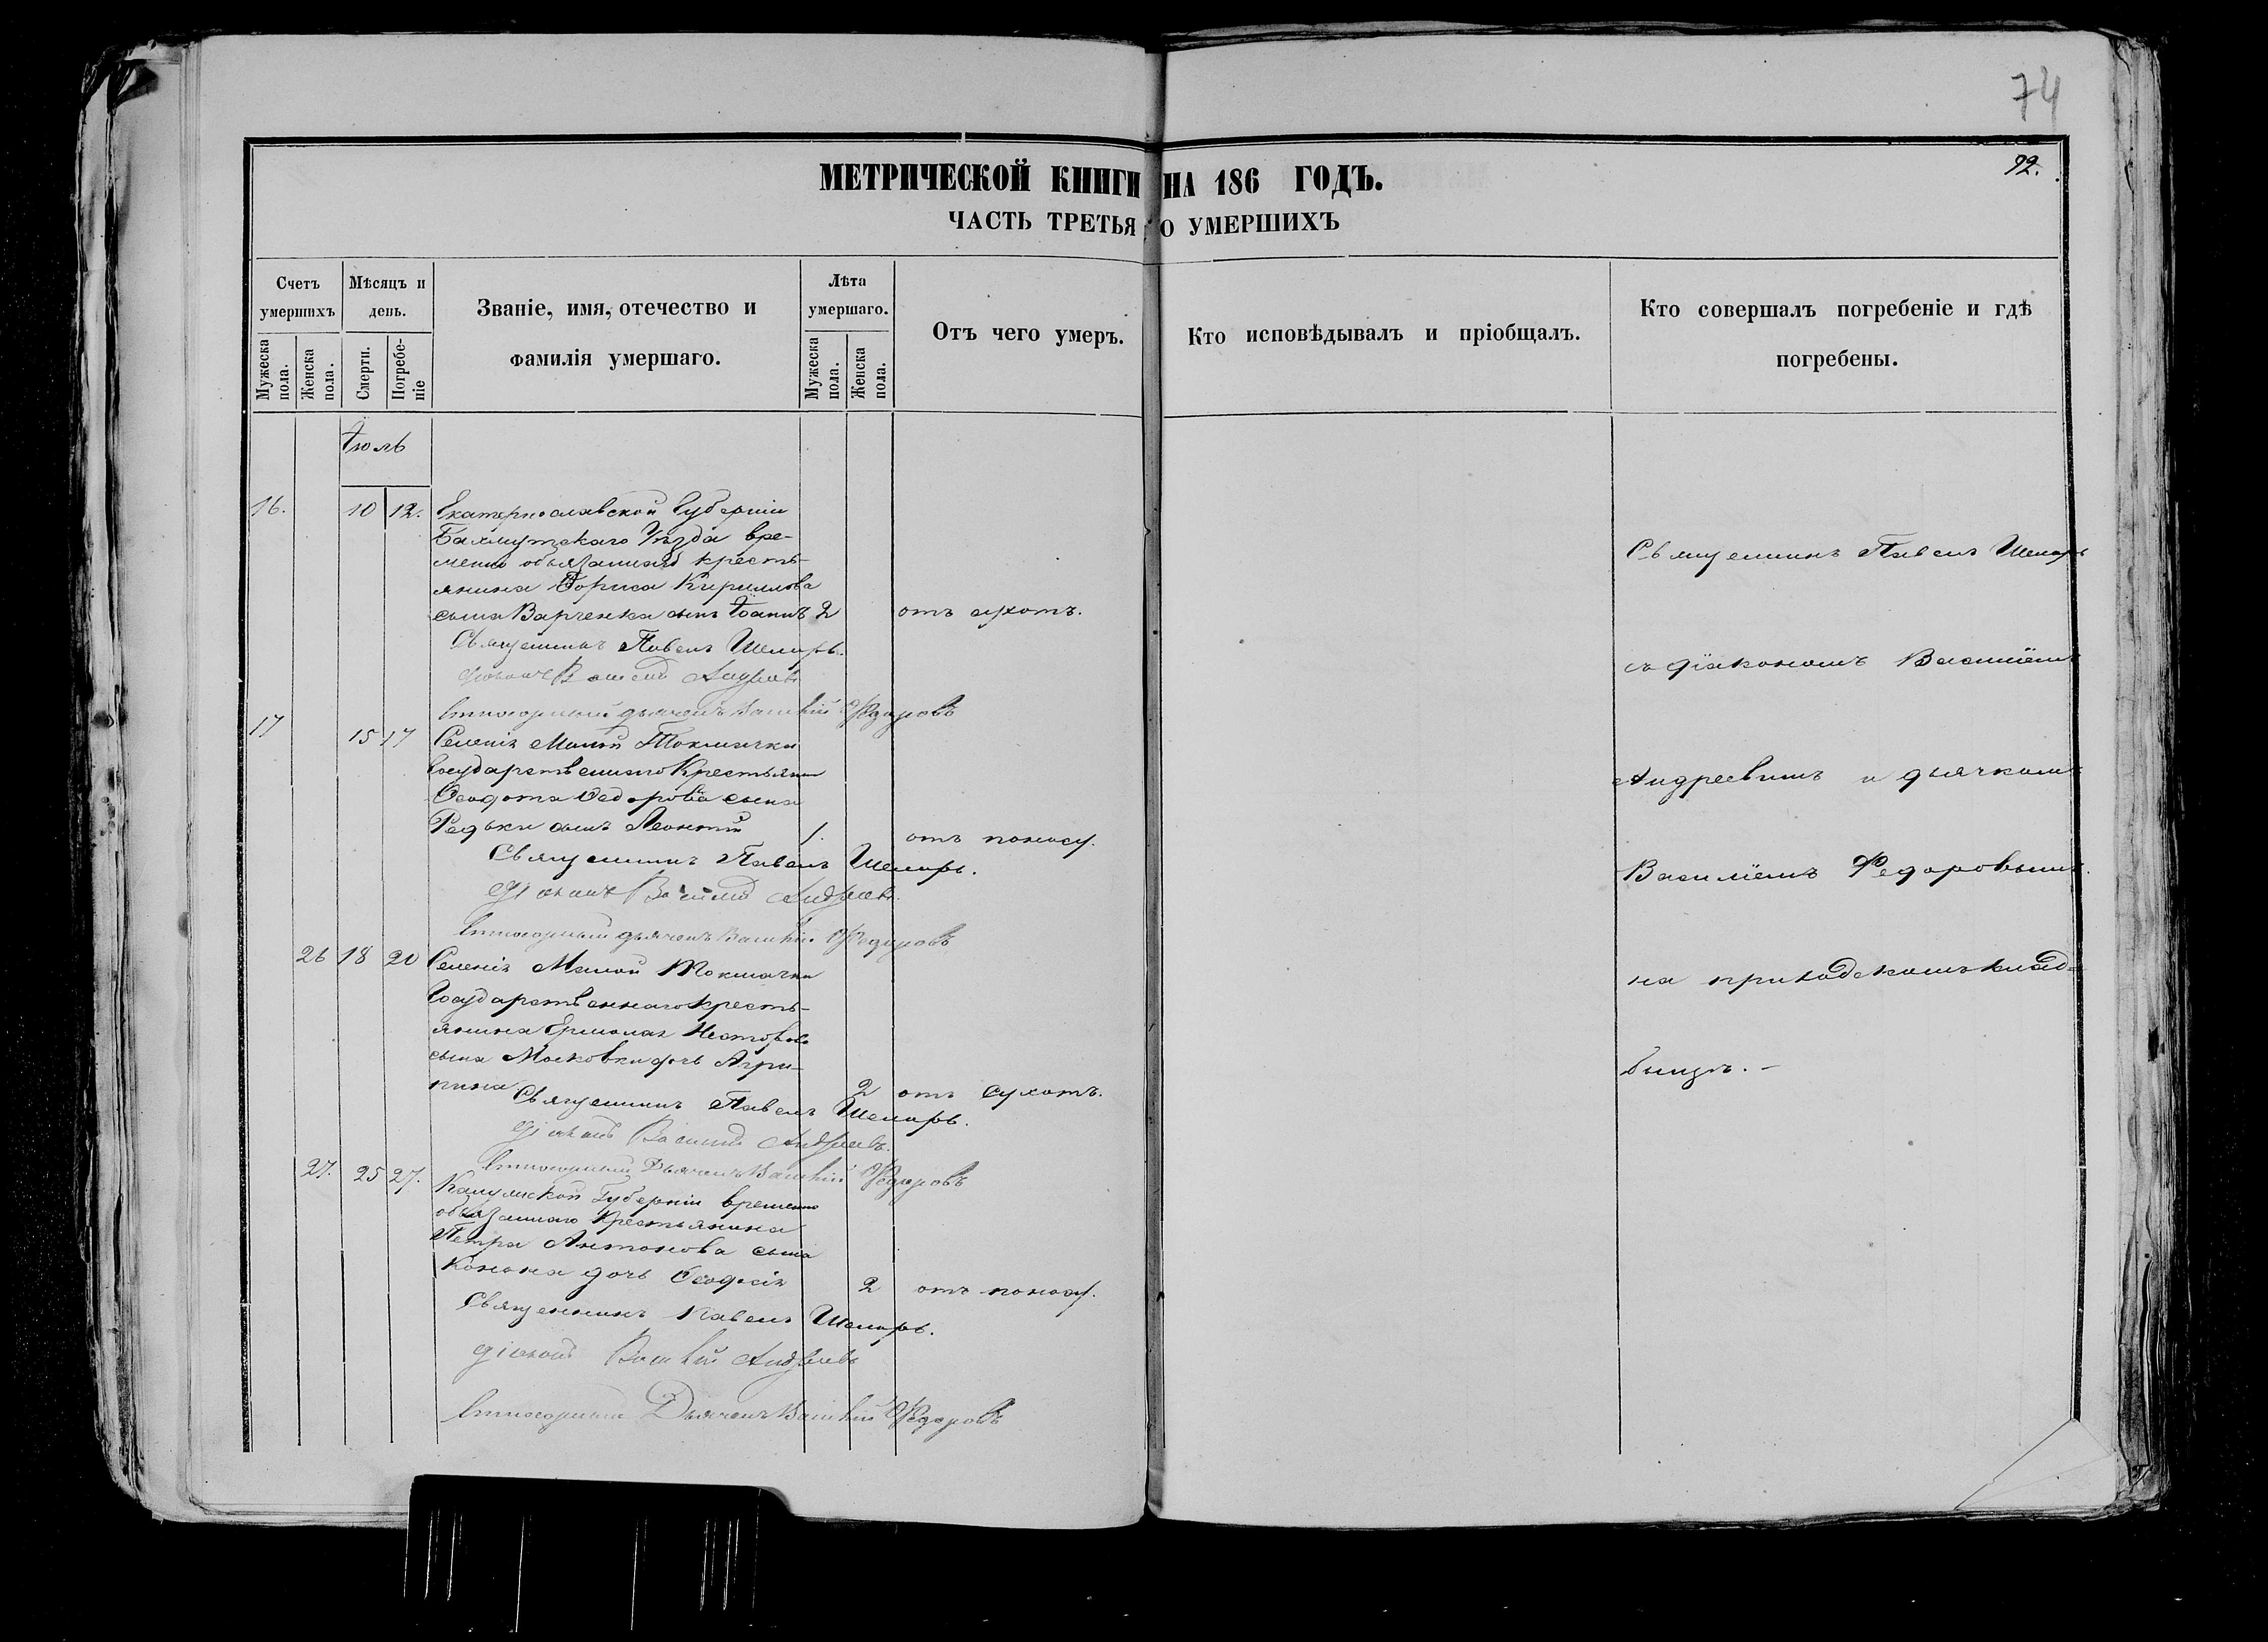 74
92.
МЕТРИЧЕСКОЙ КНИГИ НА 186 ГОДЪ.
ЧАСТЬ ТРЕТЬЯ О УМЕРШИХЪ
Счетъ умершихъ
Мужеска пола.
Женска пола.
Мѣсяцъ и день.
Смерти.
Погребеніе
Званіе, имя, отечество и фамилія умершаго.
Лѣта умершаго.
Мужеска пола.
Женска пола.
Отъ чего умеръ.
Кто исповѣдывалъ и пріобщалъ.
Кто совершалъ погребеніе и гдѣ погребены.
Іюль
16. 10 12. Екатеринославской Губерніи
Бахмутскаго Уѣзда вре-
менно обязаннаго кресть-
янина Бориса Кирилова
сына Варченка сынъ Іоаннъ 2 отъ сухотъ.
Священникъ Павелъ
діаконъ Василій Андреевъ
дьячекъ Василій Федоровъ
17 15 17 Селенія Малой Токмачки
Государственнаго Крестьянина
Феодота Федорова сына
Редьки сынъ Леонтій 1. отъ поносу.
Священникъ Павелъ
Діаконъ Василій Андреевъ
дьячекъ Василій Федоровъ
26 18 20 Селенія Малой Токмачки
Государственнаго кресть-
янина Ермолая Несторова
сына Московки дочь Агри-
пина 2 отъ сухотъ.
Священникъ Павелъ
Діаконъ Василій Андреевъ
Дьячекъ Василій Федоровъ
27. 25 27. Калужской Губерніи временно
обязаннаго Крестьянина
Петра Антонова сына
Конона дочь Феодосія 2 отъ поносу.
Священникъ Павелъ
Діаконъ Василій Андреевъ
Дьячекъ Василій Федоровъ
Священникъ Павелъ
съ діакономъ Василіемъ
Андреевымъ и дьячкомъ
Василіемъ Федоровымъ
на приходскомъ клад-
бищѣ. –